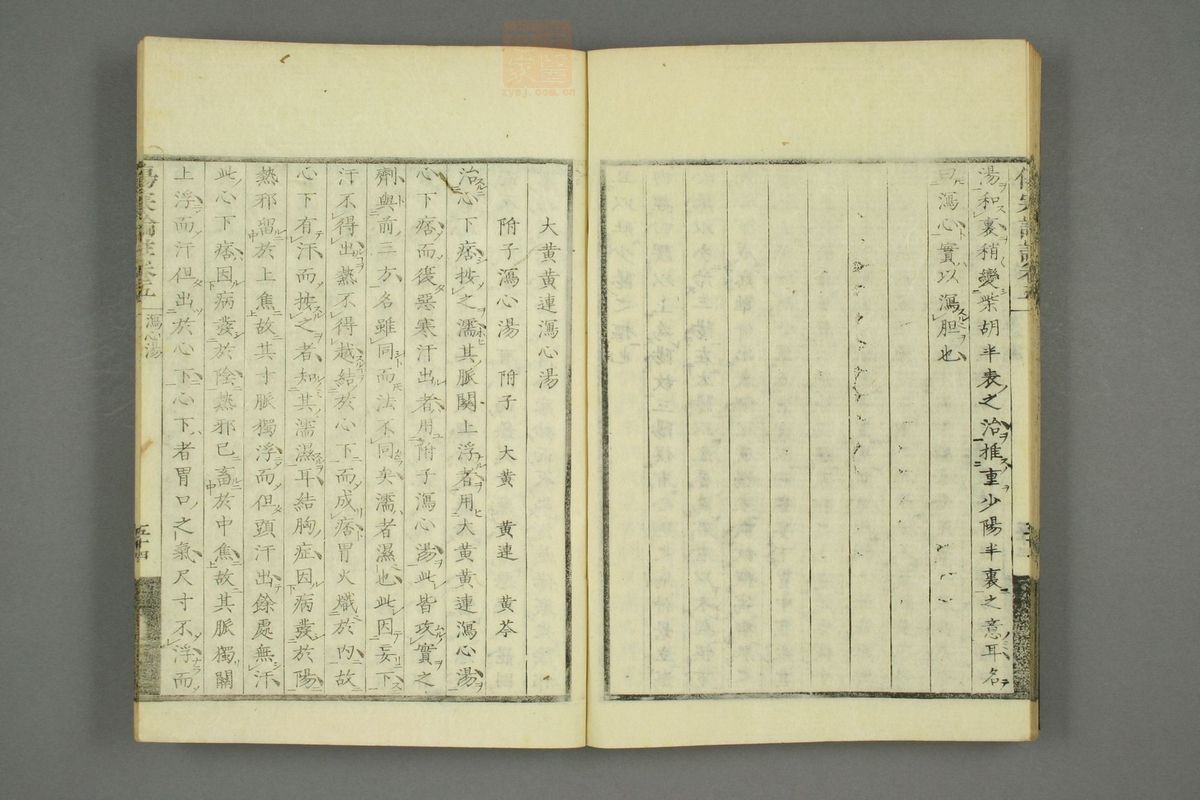 湯和裏稍變柴胡半表之治推重少陽半裏之意耳名
曰瀉心實以瀉胆也
大黃黃連瀉心湯
附子瀉心湯 附子 大黃 黃連 黃芩
治心下痞按之濡其脈關上浮者用大黃黃連瀉心湯
心下痞而復惡寒汗出者用附子瀉心湯此皆攻實之
劑與前三方名雖同而法不同矣濡者濕也此因妄下
汗不得出熱不得越結於心下而成痞胃火熾於内故
心下有汗而按之者知其濡濕耳結胸症因病發於陽
熱邪留於上焦故其寸脈獨浮而但頭汗出餘處無汗
此心下痞因病發於陰熱邪已畜於中焦故其脈獨關
上浮而汗但出於心下心下者胃口之氣尺寸不浮而
瀉心湯
五十四
zysj.com.cn